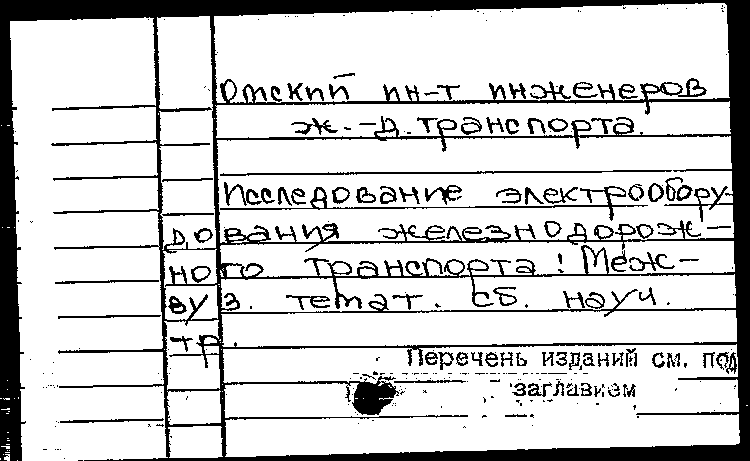 Омский ин-т инженеров
ж.-д. транспорта.
Исследование электрообору-
дования железнодорож-
ного транспорта: Меж-
вуз. темат. сб. науч.
тр.
Перечень изданий см. под
заглавием